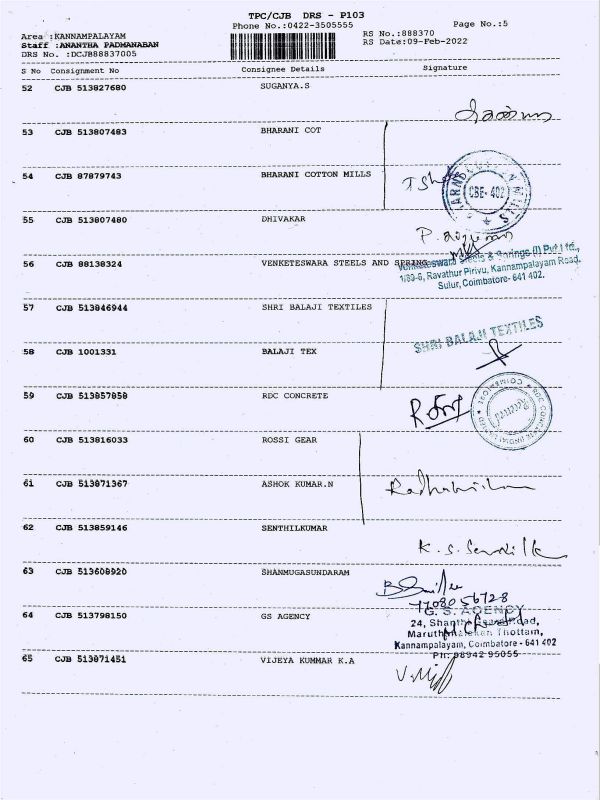 TPC/CJB DRS - P103
Phone No.:0422-3505555
Page No.:5
Area :KANNAMPALAYAM
RS No.:888370
Staff :ANANTHA PADMANABAN
RS Date:09-Feb-2022
DRS No. :DCJB88837005
S No Consignment No Consignee Details Signature
52 CJB 513827680 SUGANYA.S
53 CJB 513807483 BHARANI COT
54 CJB 87879743 BHARANI COTTON MILLS
CBE- 402
55 CJB 513807480 DHIVAKAR
56 CJB 88138324 VENKETESWARA STEELS AND SPRING
Venketeswara Steels & Springs (I) Pvt Ltd.,
1/89-6, Ravathur Pirivu, Kannampalayam Road,
Sulur, Coimbatore- 641 402.
57 CJB 513846944 SHRI BALAJI TEXTILES
SHRI BALAJI TEXTILES
58 CJB 1001331 BALAJI TEX
59 CJB 513857858 RDC CONCRETE
60 CJB 513816033 ROSSI GEAR
61 CJB 513871367 ASHOK KUMAR.N
Radhakrishnan
62 CJB 513859146 SENTHILKUMAR
K. S. Senthilk
63 CJB 513608920 SHANMUGASUNDARAM
7708056728
64 CJB 513798150 GS AGENCY
G. S. AGENCY
24, Shanthi
Thottam,
Kannampalayam, Coimbatore - 641 402
Ph: 98942 95055
65 CJB 513871451 VIJEYA KUMMAR K.A